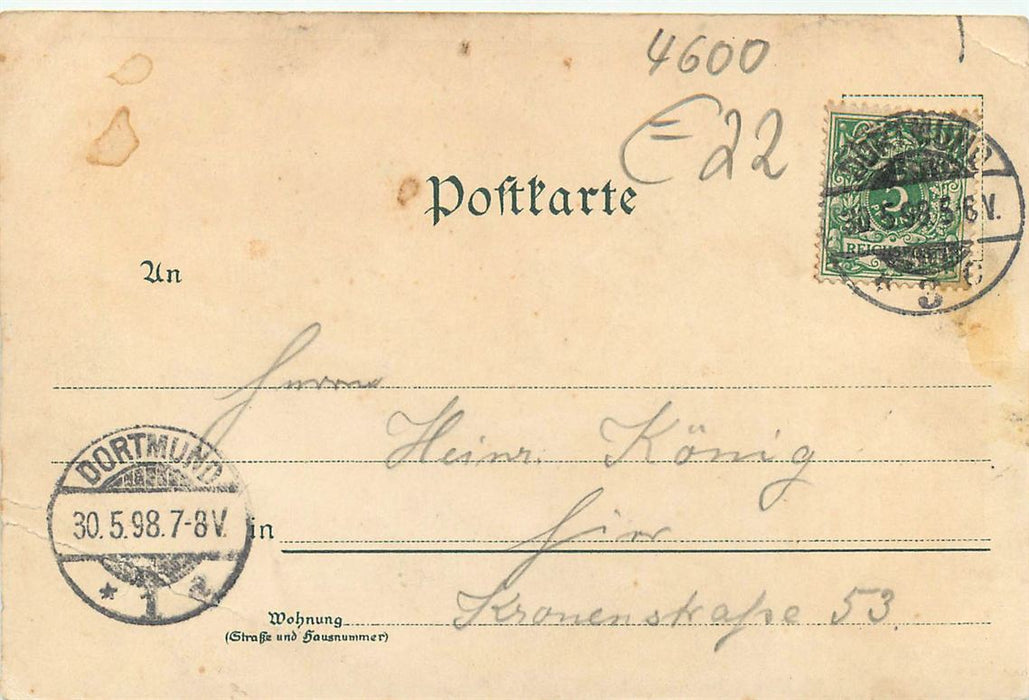 4600
E 22
Postkarte
DORTMUND
30.5.98.5-6V.
3 c
5
REICHSPOST
An
Herrn
Heinr. König
DORTMUND
30.5.98.7-8V.
* 1 a
in hier
Wohnung Kronenstraße 53.
(Straße und Hausnummer)